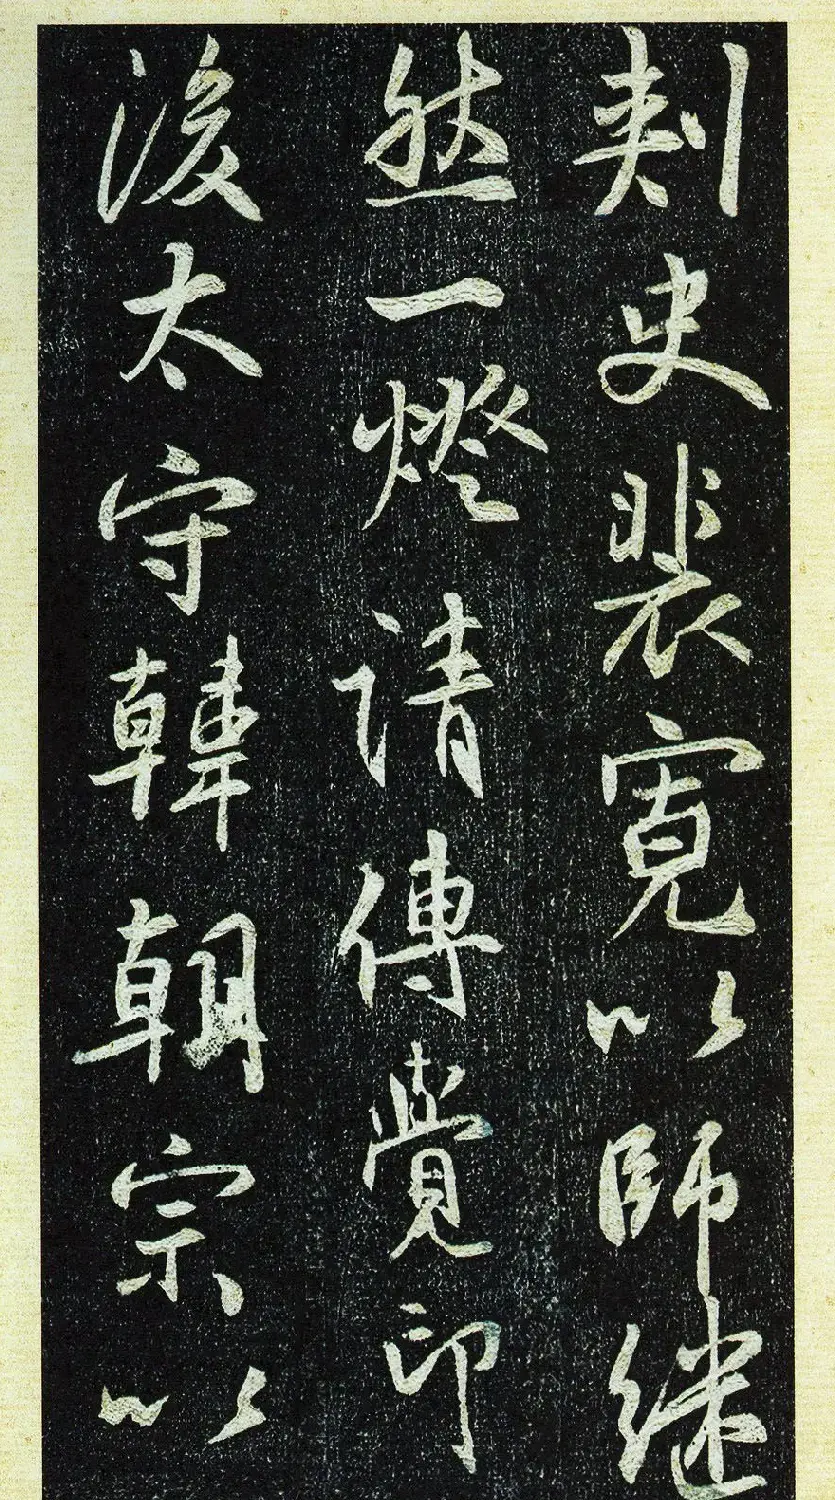 刺史裴寬以師继
然一燈請傳覺印
後太守韓朝宗以